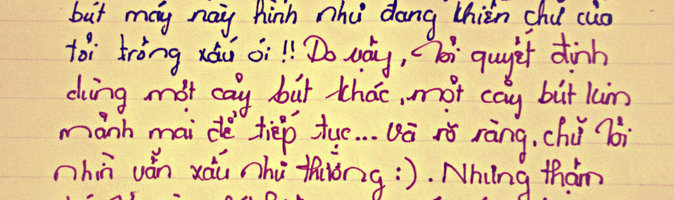 bút máy này hình như đang khiến chữ của
tôi trông xấu ói!! Do vậy, tôi quyết định
dùng một cây bút khác, một cây bút kim
mảnh mai để tiếp tục... Và rõ ràng, chữ tôi
nhìn vẫn xấu như thường :). Nhưng thậm